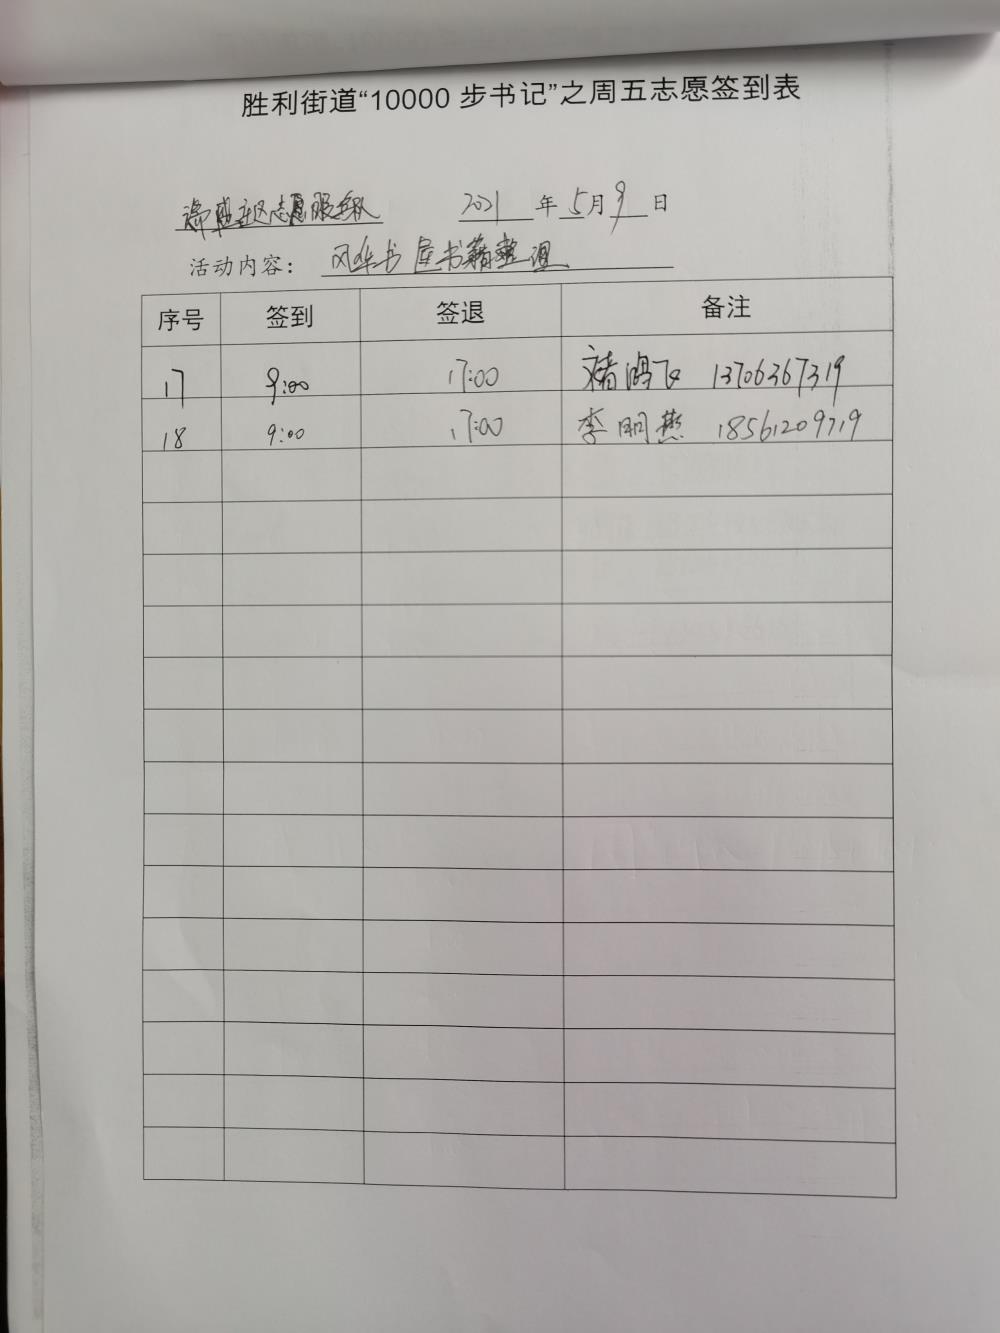 胜利街道“10000 步书记”之周五志愿签到表
社区志愿服务队 2021 年 5 月 9 日
活动内容： 风华书屋书籍整理
序号 签到 签退 备注
17 9:00 17:00 褚鸿飞 13706367319
18 9:00 17:00 李明燕 18561209719